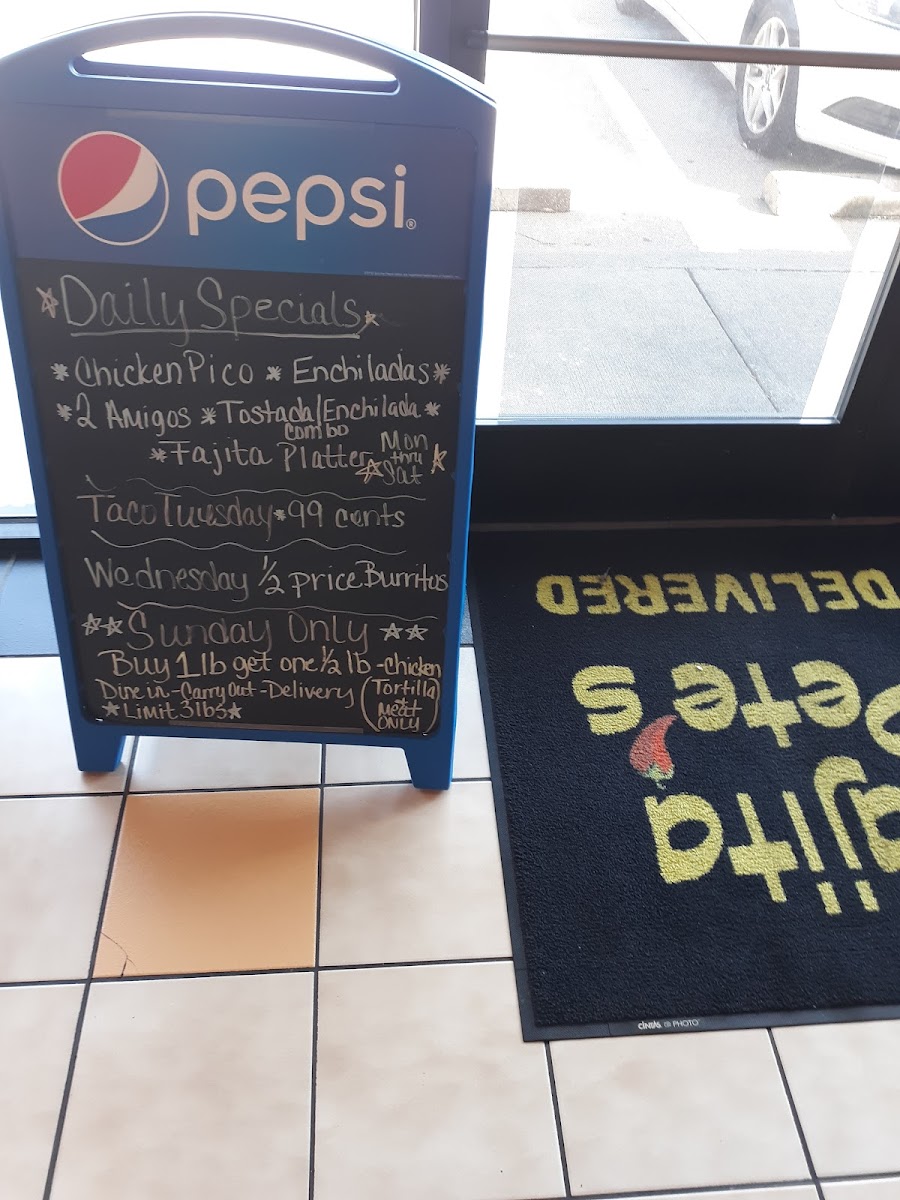 pepsi®
Daily Specials
*Chicken Pico * Enchiladas*
*2 Amigos *Tostada/Enchilada*
combo
*Fajita Platter
Mon
thru
Sat
Taco Tuesday*99 cents
Wednesday ½ price Burritos
Sunday Only
Buy 1 lb get one ½ lb -chicken
Dine in-Carry Out-Delivery
(Tortilla
Meat
ONLY)
Limit 3 lbs
ajita
Pete's
DELIVERED
CINTAS @ PHOTO